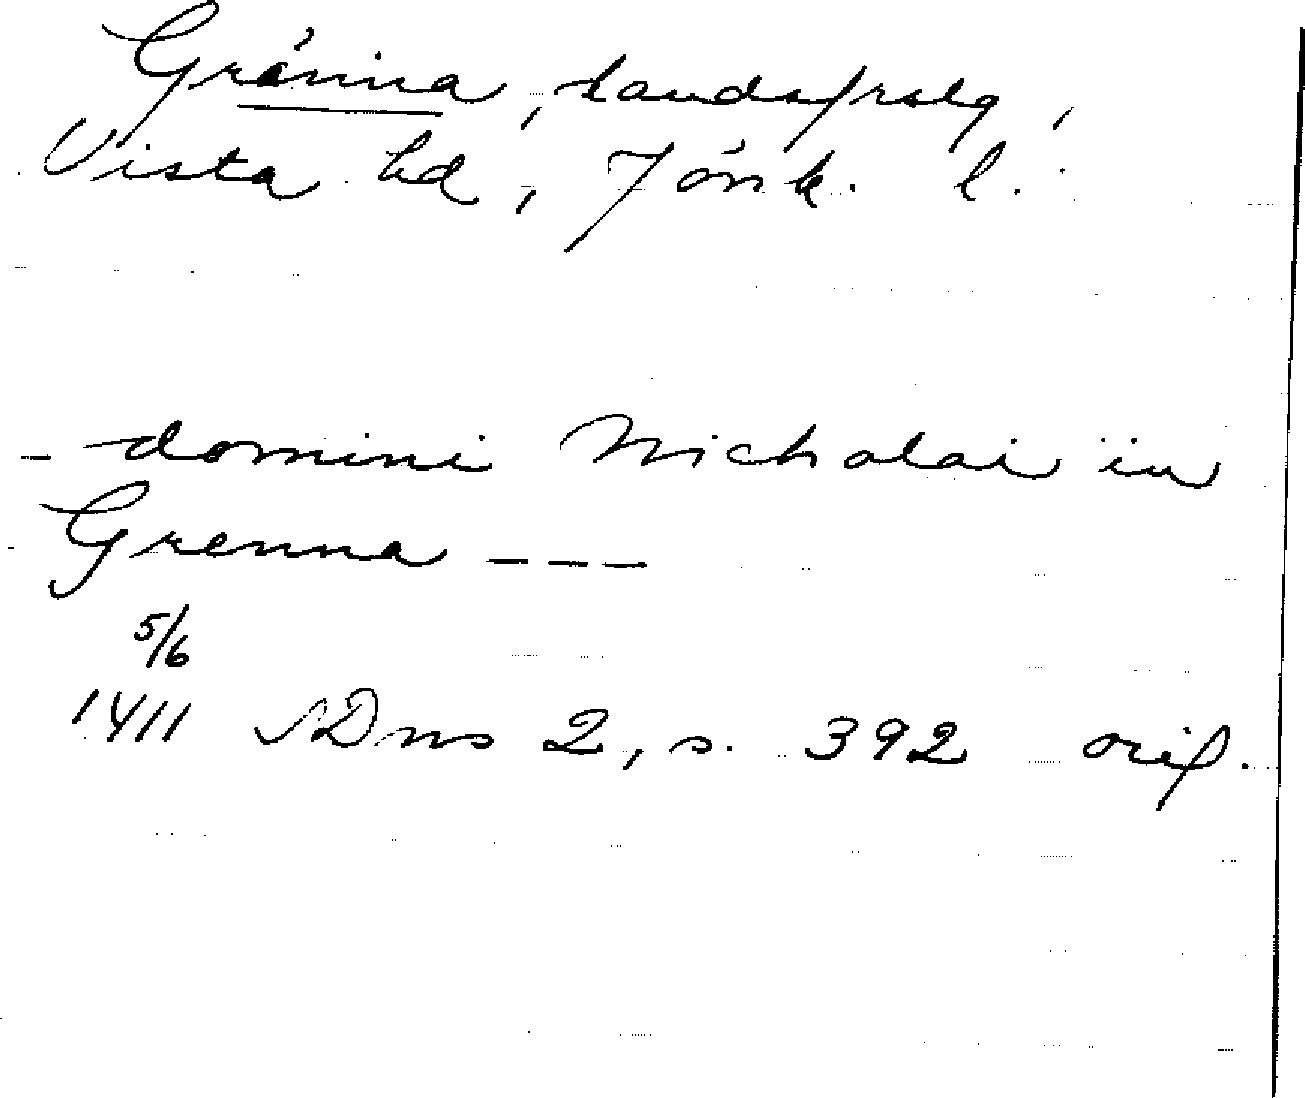 Gränna, landsförsmlg,
Vista hd, Jönk. l.
- domini Nicholai in
Grenna ---
5/6
1411 SDns 2, s. 392 orig.